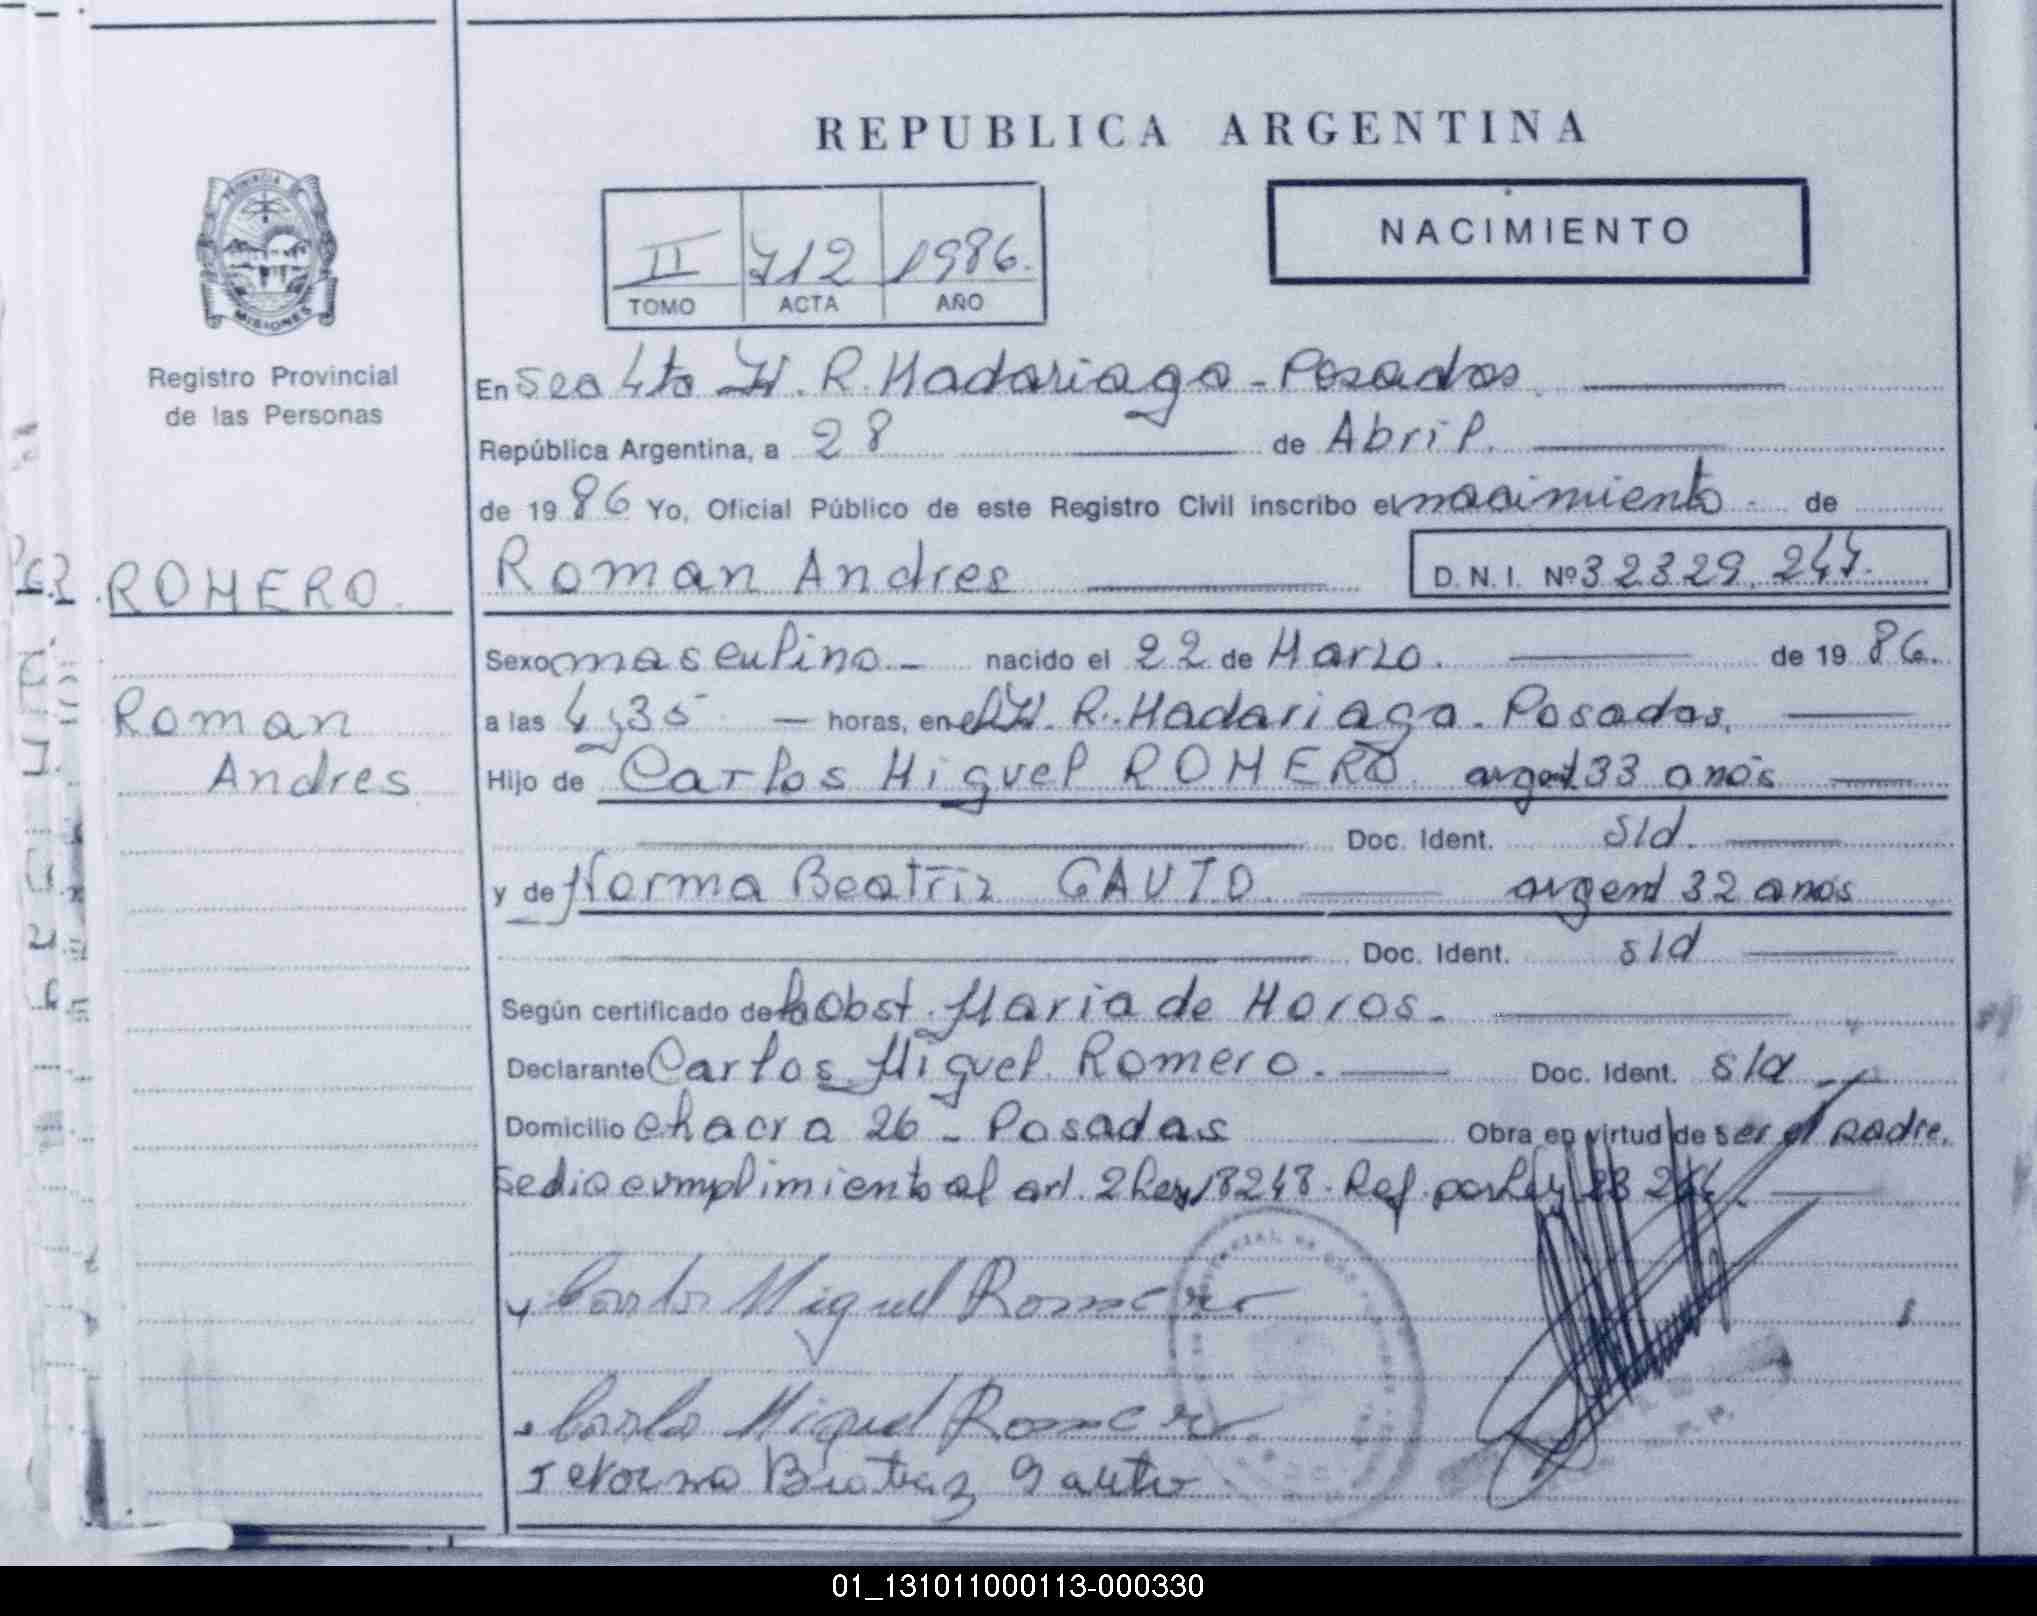 REPUBLICA ARGENTINA
NACIMIENTO
II 712 1986.
TOMO ACTA AÑO
PROVINCIA DE
MISIONES
Registro Provincial
de las Personas
En Sec 4ta H. R. Madariaga - Posadas.
República Argentina, a 28 de Abril.
de 1986 Yo, Oficial Público de este Registro Civil inscribo el nacimiento de
ROMERO.
Roman Andres
D. N. I. Nº 32329.247.
Sexo masculino - nacido el 22 de Marzo. de 1986.
Roman
Andres
a las 4,35 horas, en el H. R. Madariaga - Posadas,
Hijo de Carlos Miguel ROMERO argent 33 anos
Doc. Ident. s/d.
y de Norma Beatriz GAUTO argent 32 anos
Doc. Ident. s/d
Según certificado de la obst. Maria de Horos.
Declarante Carlos Miguel Romero. Doc. Ident. s/d
Domicilio chacra 26 - Posadas Obra en virtud de ser el padre.
Sedio cumplimiento al art. 2 Ley 18248. Ref. por Ley 23264.
Carlos Miguel Romero
Carlos Miguel Romero
Norma Beatriz Gauto
01_131011000113-000330